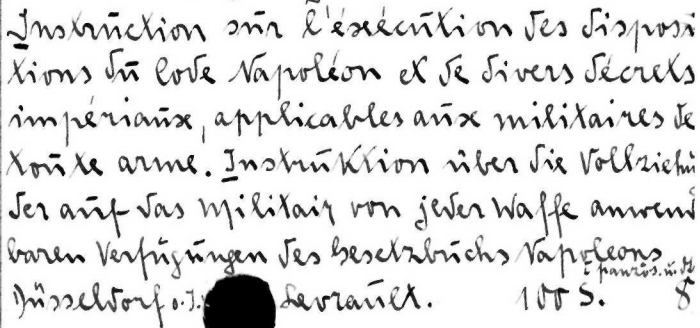 Instruction sur l'éxécution des disposi
tions du Code Napoléon et de divers décrets
impériaux, applicables aux militaires de
toute arme. Instruktion über die Vollziehu
der auf das Militair von jeder Waffe anwend
baren Verfügungen des Gesetzbuchs Napoleons
i franzÖs. u. dt
Düsseldorf o.J. Levrault. 100 S. 8